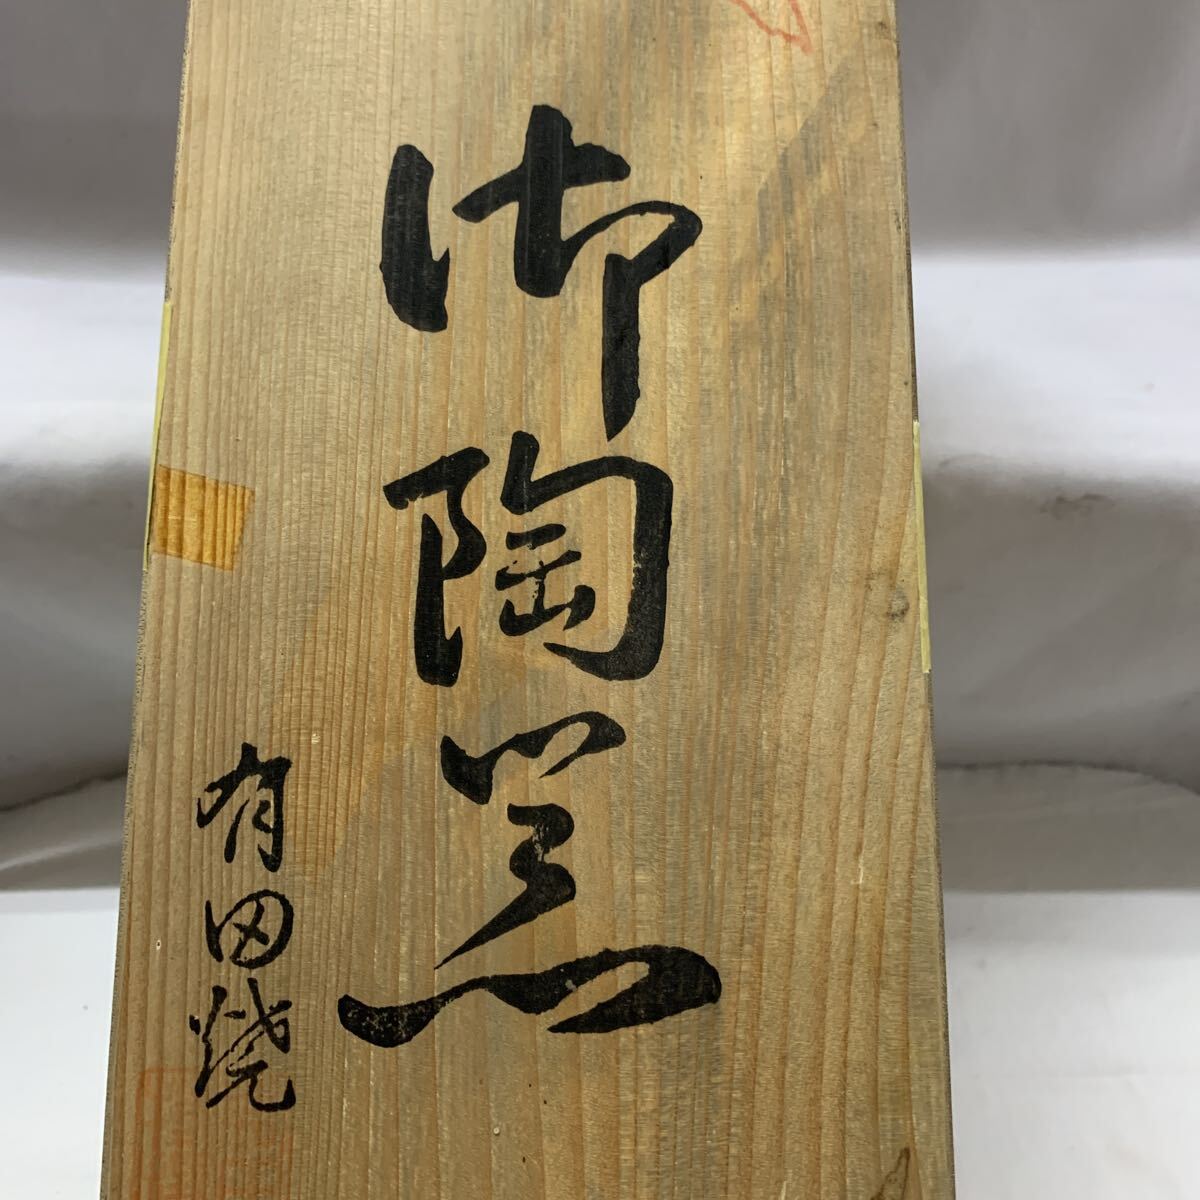 御陶器
有田焼